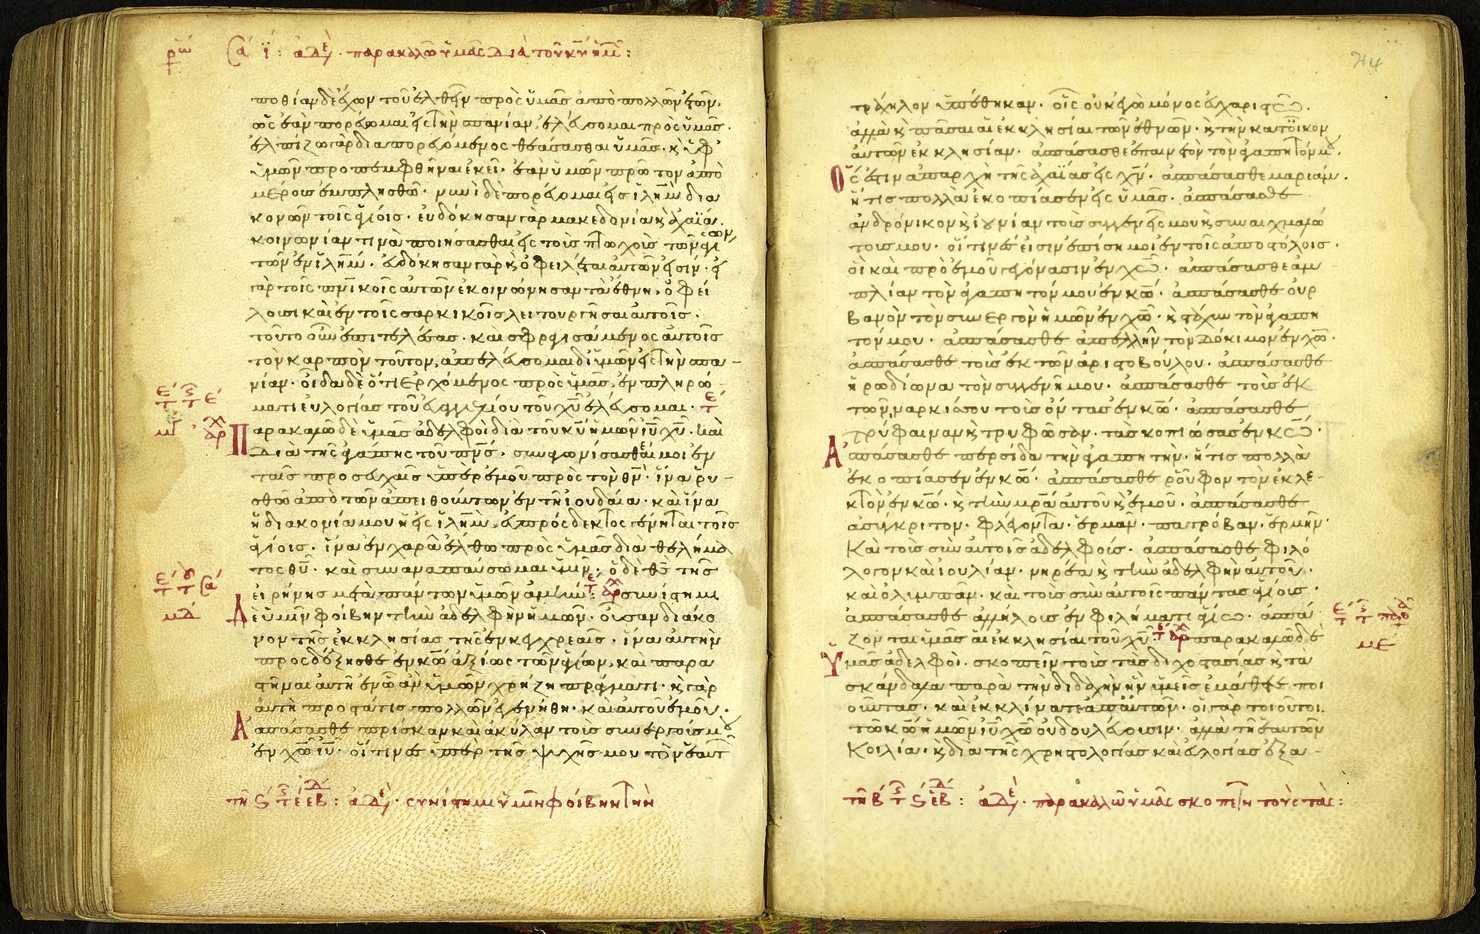 ρω Σα ι: αδε. παρακαλω υμας δια του κυ ημ:
ποθίαν δὲ ἔχων τοῦ ἐλθεῖν πρὸς ὑμᾶς ἀπὸ πολλῶν ἐτῶν,
ὡς ἐὰν πορεύωμαι εἰς τὴν σπανίαν ἐλεύσομαι πρὸς ὑμᾶς.
ἐλπίζω γὰρ διαπορευόμενος θεάσασθαι ὑμᾶς. κ ὑφ
ὑμῶν προπεμφθῆναι ἐκεῖ. ἐὰν ὑμῶν πρῶτον ἀπὸ
μέρους ἐμπλησθῶ. νυνὶ δὲ πορεύομαι εἰς ιλημ δια
κονῶν τοῖς ἁγίοις. εὐδόκησαν γὰρ μακεδονία κ ἀχαΐα.
κοινωνίαν τινὰ ποιήσασθαι εἰς τοὺς πτωχοὺς τῶν ἁγίων
τῶν ἐν ιλημ. εὐδόκησαν γὰρ κ ὀφειλέται αὐτῶν εἰσίν. εἰ
γὰρ τοῖς πνικοῖς αὐτῶν ἐκοινώνησαν τὰ ἔθνη, ὀφεί
λουσι καὶ ἐν τοῖς σαρκικοῖς λειτουργῆσαι αὐτοῖς.
τοῦτο οὖν ἐπιτελέσας. καὶ σφραγισάμενος αὐτοῖς
τὸν καρπὸν τοῦτον, ἀπελεύσομαι δι ὑμῶν εἰς τὴν σπα-
νίαν. οἶδα δὲ ὅτι ἐρχόμενος πρὸς ὑμᾶς, ἐν πληρώ-
ματι εὐλογίας τοῦ εὐαγγελίου τοῦ χυ ἐλεύσομαι.
Παρακαλῶ δὲ ὑμᾶς ἀδελφοὶ διὰ τοῦ κυ ἡμῶν ιυ χυ. καὶ
διὰ τῆς ἀγάπης τοῦ πνς. συναγωνίσασθαί μοι ἐν
ταῖς προσευχαῖς ὑπὲρ ἐμοῦ πρὸς τὸν θν. ἵνα ῥυ-
σθῶ ἀπὸ τῶν ἀπειθούντων ἐν τῇ ἰουδαία. καὶ ἵνα
ἡ διακονία μου ἡ εἰς ιλημ, εὐπρόσδεκτος γένηται τοῖς
ἁγίοις. ἵνα ἐν χαρᾷ ἔλθω πρὸς ὑμᾶς διὰ θελήμα
τος θυ. καὶ συναναπαύσωμαι ὑμῖν. ὁ δὲ θς τῆς
εἰρήνης μετὰ πάντων ὑμῶν ἀμήν: συνίστημι
Δὲ ὑμῖν φοίβην τὴν ἀδελφὴν ἡμῶν. οὖσαν διάκο
νον τῆς ἐκκλησίας τῆς ἐν κεγχρεαῖς. ἵνα αὐτὴν
προσδέξησθε ἐν κω ἀξίως τῶν ἁγίων, καὶ παρα
στῆναι αὐτῇ ἐν ᾧ ἂν ὑμῶν χρήζη πράγματι. κ γὰρ
αὕτη προστάτις πολλῶν ἐγενήθη. καὶ αὐτοῦ ἐμοῦ.
Ἀσπάσασθε πρίσκαν καὶ ἀκύλαν τοὺς συνεργούς μου
ἐν χω ιυ. οἵτινες ὑπὲρ τῆς ψυχῆς μου τὸν ἑαυτ
αδε. συνιστημι υμιν φοιβην την
τράχηλον ὑπέθηκαν. οἷς οὐκ ἐγὼ μόνος εὐχαριστῶ.
ἀλλὰ κ πᾶσαι αἱ ἐκκλησίαι τῶν ἐθνῶν. κ τὴν κατ οἶκον
αὐτῶν ἐκκλησίαν. ἀσπάσασθε ἐπαινετὸν τὸν ἀγαπητόν μου.
Ὅς ἐστιν ἀπαρχὴ τῆς ἀχαΐας εἰς χν. ἀσπάσασθε μαριάμ.
ἥτις πολλὰ ἐκοπίασεν εἰς ὑμᾶς. ἀσπάσασθε
ἀνδρόνικον κ ἰουνίαν τοὺς συγγενεῖς μου κ συναιχμαλώ
τους μου. οἵτινές εἰσιν ἐπίσημοι ἐν τοῖς ἀποστόλοις.
οἳ καὶ πρὸ ἐμοῦ γεγόνασιν ἐν χω. ἀσπάσασθε ἀμ
πλίαν τὸν ἀγαπητόν μου ἐν κω. ἀσπάσασθε οὐρ
βανὸν τὸν συνεργὸν ἡμῶν ἐν χω. κ στάχυν τὸν ἀγαπη
τόν μου. ἀσπάσασθε ἀπελλῆν τὸν δόκιμον ἐν χω.
ἀσπάσασθε τοὺς ἐκ τῶν ἀριστοβούλου. ἀσπάσασθε
ἡρωδίωνα τὸν συγγενῆ μου. ἀσπάσασθε τοὺς ἐκ
τῶν ναρκίσσου τοὺς ὄντας ἐν κω. ἀσπάσασθε
τρύφαιναν κ τρυφῶσαν. τὰς κοπιώσας ἐν κω.
Ἀσπάσασθε περσίδα τὴν ἀγαπητήν. ἥτις πολλὰ
ἐκοπίασεν ἐν κω. ἀσπάσασθε ῥοῦφον τὸν ἐκλε-
κτὸν ἐν κω. κ τὴν μρα αὐτοῦ κ ἐμοῦ. ἀσπάσασθε
ἀσύγκριτον. φλέγοντα. ἑρμᾶν. πατρόβαν. ἑρμῆν.
καὶ τοὺς σὺν αὐτοῖς ἀδελφούς. ἀσπάσασθε φιλό
λογον καὶ ἰουλίαν. νηρέα κ τὴν ἀδελφὴν αὐτοῦ.
καὶ ὀλυμπᾶν. καὶ τοὺς σὺν αὐτοῖς πάντας ἁγίους.
ἀσπάσασθε ἀλλήλους ἐν φιλήματι ἁγίω. ἀσπά
ζονται ὑμᾶς αἱ ἐκκλησίαι τοῦ χυ. παρακαλῶ δὲ
Ὑμᾶς ἀδελφοί. σκοπεῖν τοὺς τὰς διχοστασίας κ τὰ
σκάνδαλα παρὰ τὴν διδαχὴν ἣν ὑμεῖς ἐμάθετε ποι
οῦντας. καὶ ἐκκλίνατε ἀπ αὐτῶν. οἱ γὰρ τοιοῦτοι
τῷ κω ἡμῶν ιυ χω οὐ δουλεύουσιν. ἀλλὰ τῇ ἑαυτῶν
κοιλία. κ διὰ τῆς χρηστολογίας καὶ εὐλογίας ἐξα-
αδε. παρακαλω υμας σκοπειν τους τας: